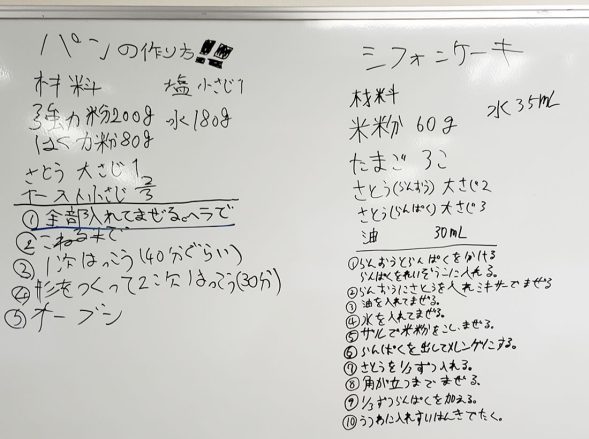 パンの作り方!!
材料 塩小さじ1
強力粉200g 水180g
はく力粉80g
さとう 大さじ1
イースト小さじ2/3
①全部入れてまぜる。ヘラで
②こねる手で
③1次はっこう(40分ぐらい)
④形をつくって2次はっこう(30分)
⑤オーブン
シフォンケーキ
材料
水35mL
米粉 60g
たまご 3こ
さとう(らんおう)大さじ2
さとう(らんぱく)大さじ3
油 30mL
①らんおうとらんぱくをわける
らんぱくをれいぞうこに入れる。
②らんおうにさとうを入れミキサーでまぜる
③油を入れてまぜる。
④水を入れてまぜる。
⑤ザルで米粉をこし、まぜる。
⑥らんぱくを出してメレンゲにする。
⑦さとうを1/3ずつ入れる。
⑧角が立つまでまぜる。
⑨1/3ずつらんぱくを加える。
⑩うつわに入れすいはんきでたく。